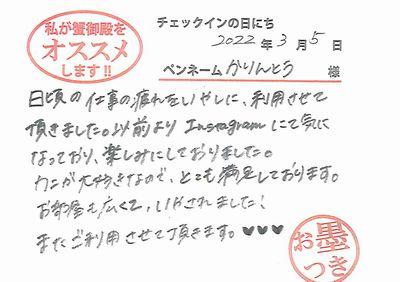 私が蟹御殿を
オススメ
します!!
チェックインの日にち
2022年3月5日
ペンネーム かりんとう 様
日頃の仕事の疲れをいやしに、利用させて
頂きました。以前よりInstagramにて気に
なっており、楽しみにしておりました。
カニが大好きなので、とても満足しております。
お部屋も広くて、いやされました!
またご利用させて頂きます。♥♥♥
お墨
つき